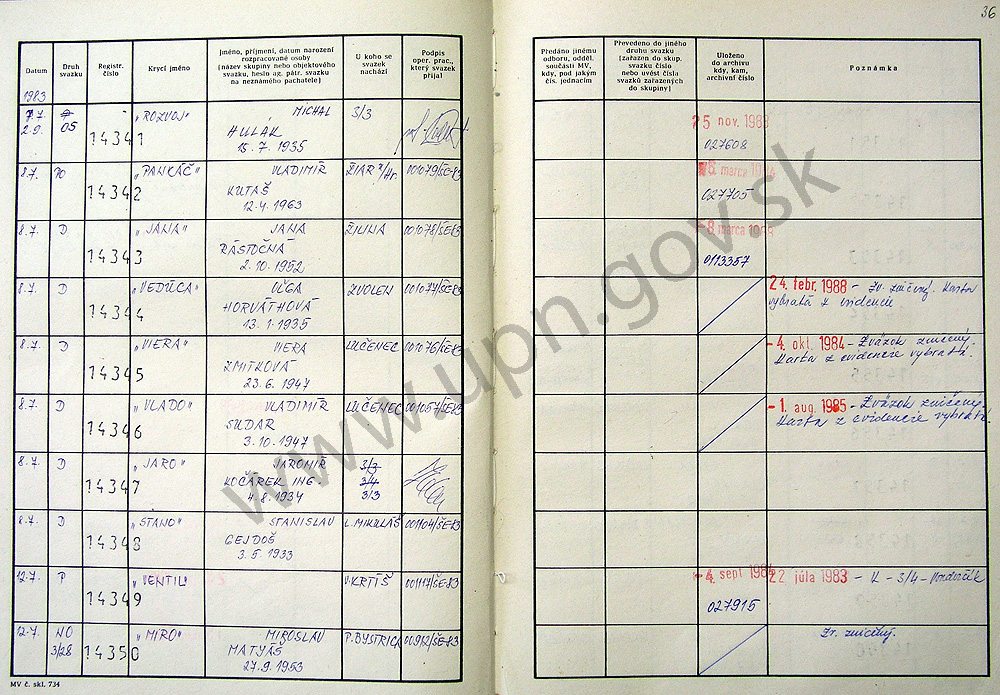 36
Datum
Druh svazku
Registr. číslo
Krycí jméno
Jméno, příjmení, datum narození
rozpracované osoby
(název skupiny nebo objektového
svazku, heslo ag. pátr. svazku
na neznámého pachatele)
U koho se
svazek
nachází
Podpis
oper. prac.,
který svazek
přijal
Předáno jinému
odboru, odděl.
součásti MV,
kdy, pod jakým
čís. jednacím
Převedeno do jiného
druhu svazku
(zařazen do skup.
svazku číslo
nebo uvést čísla
svazků zařazených
do skupiny)
Uloženo
do archivu
kdy, kam,
archivní číslo
Poznámka
1983
7.7. „ROZVOJ" MICHAL 3/3
2.9. 05 14341 HULÁK
15.7.1935
5 nov. 1983
027608
8.7. PO „PANKÁČ" VLADIMÍR ŽIAR n/Hr. 001079/ŠE-83
14342 KUTAŠ
12.4.1963
8. marca
027705
8.7. D „JANA" JANA ŽILINA 001078/ŠE-83
14343 RÁSTOČNÁ
2.10.1952
-8 marca
0113357
8.7. D „VEDÚCA" OĽGA ZVOLEN 001077/ŠE-83
14344 HORVÁTHOVÁ
13.1.1935
24. febr. 1988 - Zv. zničený. Karta
vybratá z evidencie
8.7. D „VIERA" VIERA LUČENEC 001076/ŠE-83
14345 ZMITKOVÁ
23.6.1947
- 4. okt. 1984 - Zväzok zničený.
Karta z evidencie vybratá.
8.7. D „VLADO" VLADIMÍR LUČENEC 001057/ŠE-83
14346 SUDAR
3.10.1947
- 1. aug. 1985 - Zväzok zničený
Karta z evidencie vybratá.
8.7. D „JARO" JAROMÍR 3/3
14347 KOČÁREK ING. 3/4
4.8.1934 3/3
8.7. D „STANO" STANISLAV L. MIKULÁŠ 001104/ŠE-83
14348 GEJDOŠ
3.5.1933
12.7. P „VENTIL" V. KRTÍŠ 001117/ŠE-83
14349
-4. sept 22. júla 1983 - K - 3/4 -
027915
12.7. NO „MIRO" MIROSLAV P. BYSTRICA 00912/ŠE-83
3/28 14350 MATYÁŠ
27.9.1953
Zv. zničený.
MV č. skl. 734
www.upn.gov.sk